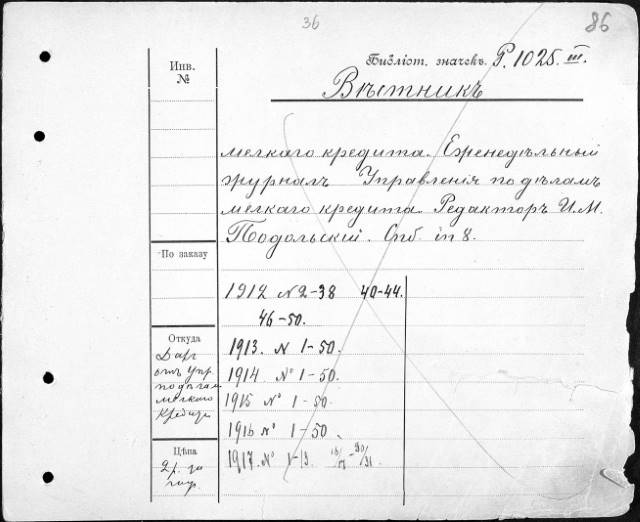 36
86
Инв.
№
Библіот. значекъ. Р. 1025. III.
Вѣстникъ
мелкаго кредита. Еженедѣльный
журналъ Управленія по дѣламъ
мелкаго кредита. Редакторъ И. М.
Подольскій. Спб. in 8.
По заказу
1912 № 2-38 40-44.
46-50.
Откуда
Даръ
отъ Упр.
по дѣлам
мелкаго
кредита
1913. № 1-50.
1914 № 1-50.
1915 № 1-50.
1916 № 1-50
Цѣна
2 р. за
год.
1917. № 1-13.